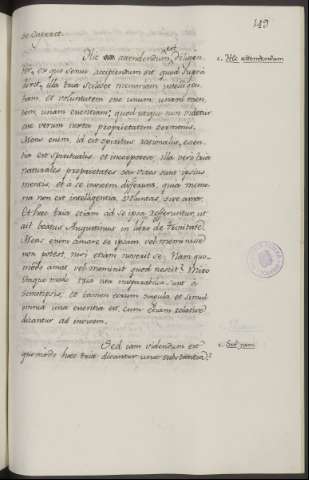 149
Hic attendendum est diligen-
ter, ex quo sensu accipiendum sit quod supra
dixit, illa tria scilicet memoriam intelligen-
tiam, et voluntatem esse unum, unam men-
tem, unam essentiam; quod utique non videtur
esse verum iuxta proprietatem sermonis.
Mens enim, id est spiritus rationalis, essen-
tia est spiritualis et incorporea; illa vero tria
naturales proprietates seu vires sunt ipsius
mentis, et a se invicem differunt, quia memo-
ria non est intelligentia, voluntas, sive amor.
Et haec tria etiam ad se ipsa referuntur, ut
ait beatus Augustinus in libro de Trinitate.
Mens enim amare se ipsam vel meminisse
non potest, nisi etiam noverit se. Nam quo-
modo amat vel meminit quod nescit? Miro
itaque modo tria ista inseparabilia sunt a
semetipsis, et tamen eorum singula et simul
omnia una essentia est, cum etiam relative
dicantur ad invicem.
Sed iam videndum est
quomodo haec tria dicantur una substantia?
c. Hic attendendum
c. Sed iam